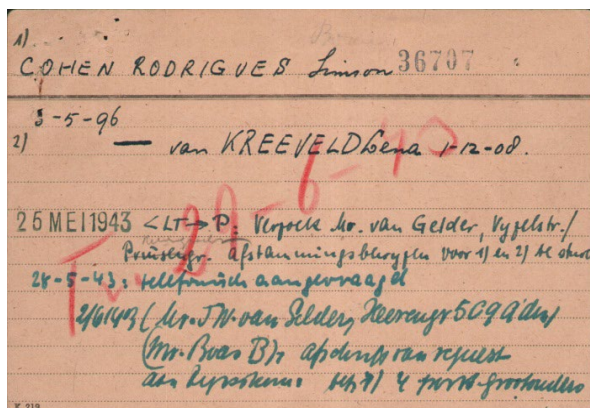 1)
COHEN RODRIGUES Simson 36707
3-5-96
2) — van KREEVELD Lena 1-12-08.
T. 29-6-43
25 MEI 1943 <LT→P. Verzoeke Mr. van Gelder, Vijzelstr./
Prinsengr. afstammingsbewijzen voor 1) en 2) te
28-5-43: telefonisch aangevraagd
2/6/43 (Mr. J.W. van Gelder, Heerengr 509 A'dam
(Mr. Boas B): van request
aan 4
K 219